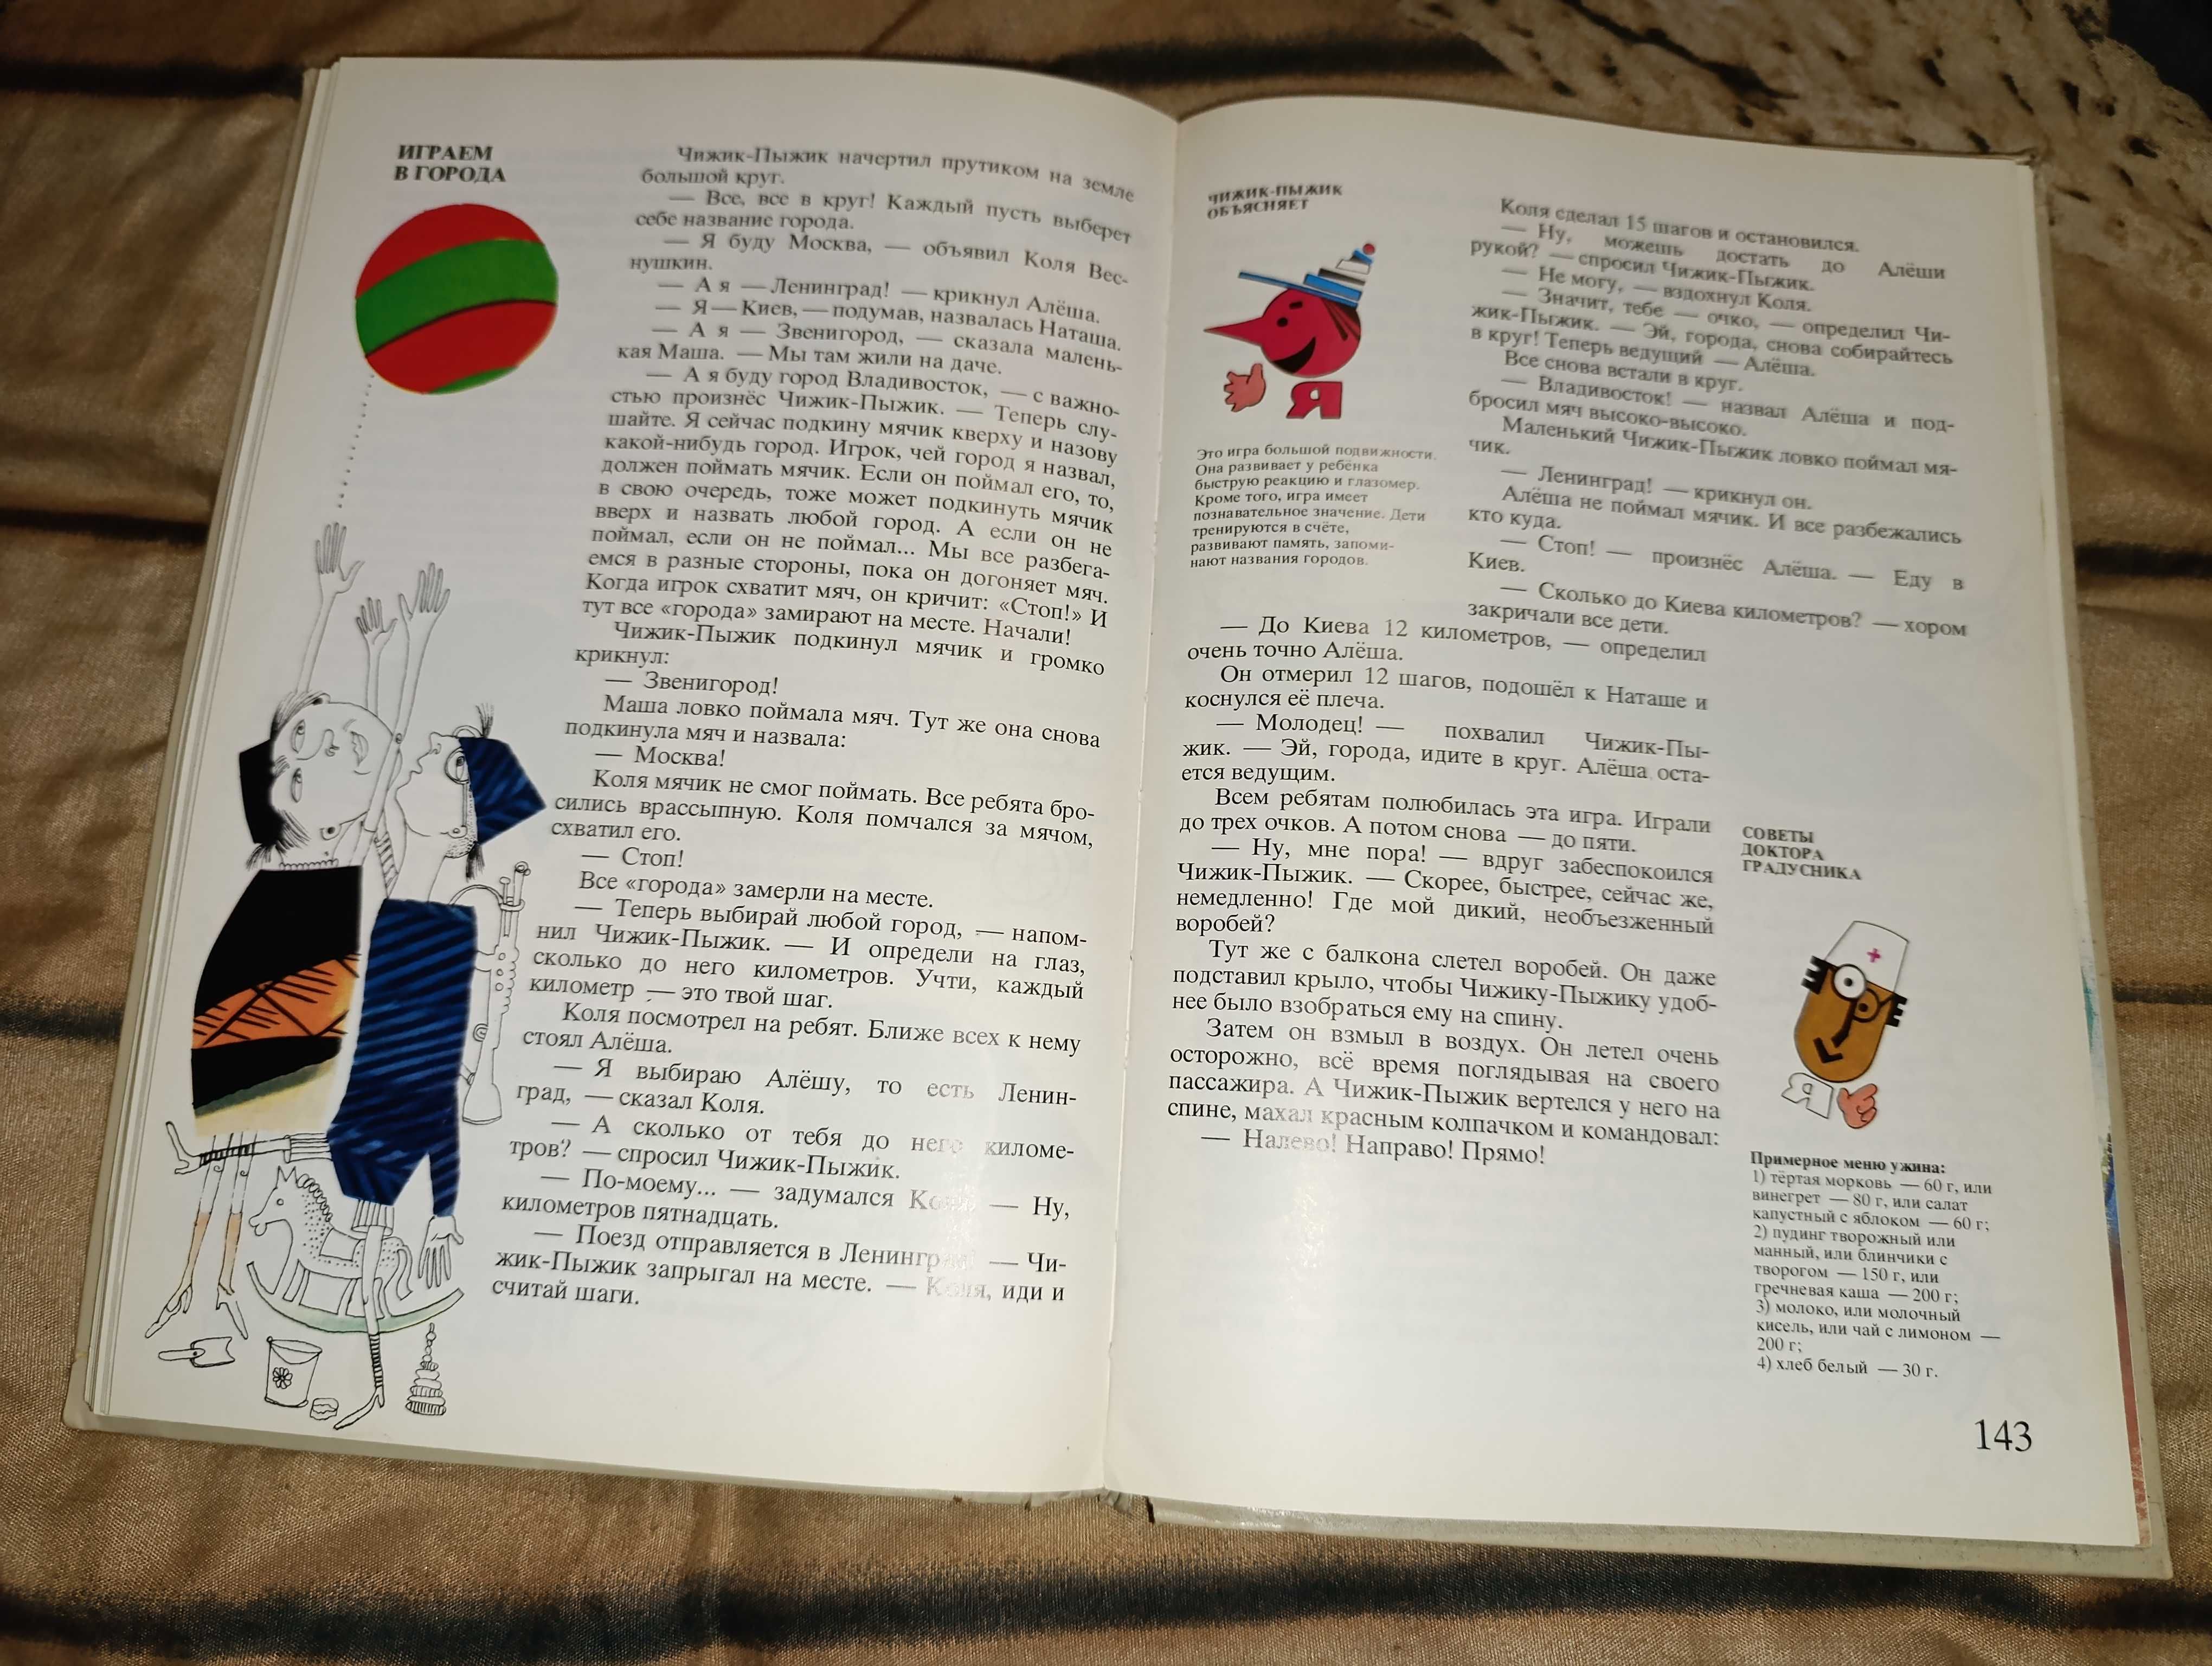 ИГРАЕМ
В ГОРОДА
Чижик-Пыжик начертил прутиком на земле
большой круг.
— Все, все в круг! Каждый пусть выберет
себе название города.
— Я буду Москва, — объявил Коля Вес-
нушкин.
— А я — Ленинград! — крикнул Алёша.
— Я — Киев, — подумав, назвалась Наташа.
— А я — Звенигород, — сказала малень-
кая Маша. — Мы там жили на даче.
— А я буду город Владивосток, — с важно-
стью произнёс Чижик-Пыжик. — Теперь слу-
шайте. Я сейчас подкину мячик кверху и назову
какой-нибудь город. Игрок, чей город я назвал,
должен поймать мячик. Если он поймал его, то,
в свою очередь, тоже может подкинуть мячик
вверх и назвать любой город. А если он не
поймал, если он не поймал... Мы все разбега-
емся в разные стороны, пока он догоняет мяч.
Когда игрок схватит мяч, он кричит: «Стоп!» И
тут все «города» замирают на месте. Начали!
Чижик-Пыжик подкинул мячик и громко
крикнул:
— Звенигород!
Маша ловко поймала мяч. Тут же она снова
подкинула мяч и назвала:
— Москва!
Коля мячик не смог поймать. Все ребята бро-
сились врассыпную. Коля помчался за мячом,
схватил его.
— Стоп!
Все «города» замерли на месте.
— Теперь выбирай любой город, — напом-
нил Чижик-Пыжик. — И определи на глаз,
сколько до него километров. Учти, каждый
километр — это твой шаг.
Коля посмотрел на ребят. Ближе всех к нему
стоял Алёша.
— Я выбираю Алёшу, то есть Ленин-
град, — сказал Коля.
— А сколько от тебя до него киломе-
тров? — спросил Чижик-Пыжик.
— По-моему... — задумался Коля. — Ну,
километров пятнадцать.
— Поезд отправляется в Ленинград! — Чи-
жик-Пыжик запрыгал на месте. — Коля, иди и
считай шаги.
ЧИЖИК-ПЫЖИК
ОБЪЯСНЯЕТ
Я
Это игра большой подвижности.
Она развивает у ребёнка
быструю реакцию и глазомер.
Кроме того, игра имеет
познавательное значение. Дети
тренируются в счёте,
развивают память, запоми-
нают названия городов.
Коля сделал 15 шагов и остановился.
— Ну, можешь достать до Алёши
рукой? — спросил Чижик-Пыжик.
— Не могу, — вздохнул Коля.
— Значит, тебе — очко, — определил Чи-
жик-Пыжик. — Эй, города, снова собирайтесь
в круг! Теперь ведущий — Алёша.
Все снова встали в круг.
— Владивосток! — назвал Алёша и под-
бросил мяч высоко-высоко.
Маленький Чижик-Пыжик ловко поймал мя-
чик.
— Ленинград! — крикнул он.
Алёша не поймал мячик. И все разбежались
кто куда.
— Стоп! — произнёс Алёша. — Еду в
Киев.
— Сколько до Киева километров? — хором
закричали все дети.
— До Киева 12 километров, — определил
очень точно Алёша.
Он отмерил 12 шагов, подошёл к Наташе и
коснулся её плеча.
— Молодец! — похвалил Чижик-Пы-
жик. — Эй, города, идите в круг. Алёша оста-
ется ведущим.
Всем ребятам полюбилась эта игра. Играли
до трех очков. А потом снова — до пяти.
— Ну, мне пора! — вдруг забеспокоился
Чижик-Пыжик. — Скорее, быстрее, сейчас же,
немедленно! Где мой дикий, необъезженный
воробей?
Тут же с балкона слетел воробей. Он даже
подставил крыло, чтобы Чижику-Пыжику удоб-
нее было взобраться ему на спину.
Затем он взмыл в воздух. Он летел очень
осторожно, всё время поглядывая на своего
пассажира. А Чижик-Пыжик вертелся у него на
спине, махал красным колпачком и командовал:
— Налево! Направо! Прямо!
СОВЕТЫ
ДОКТОРА
ГРАДУСНИКА
Я
Примерное меню ужина:
1) тёртая морковь — 60 г, или
винегрет — 80 г, или салат
капустный с яблоком — 60 г;
2) пудинг творожный или
манный, или блинчики с
творогом — 150 г, или
гречневая каша — 200 г;
3) молоко, или молочный
кисель, или чай с лимоном —
200 г;
4) хлеб белый — 30 г.
143